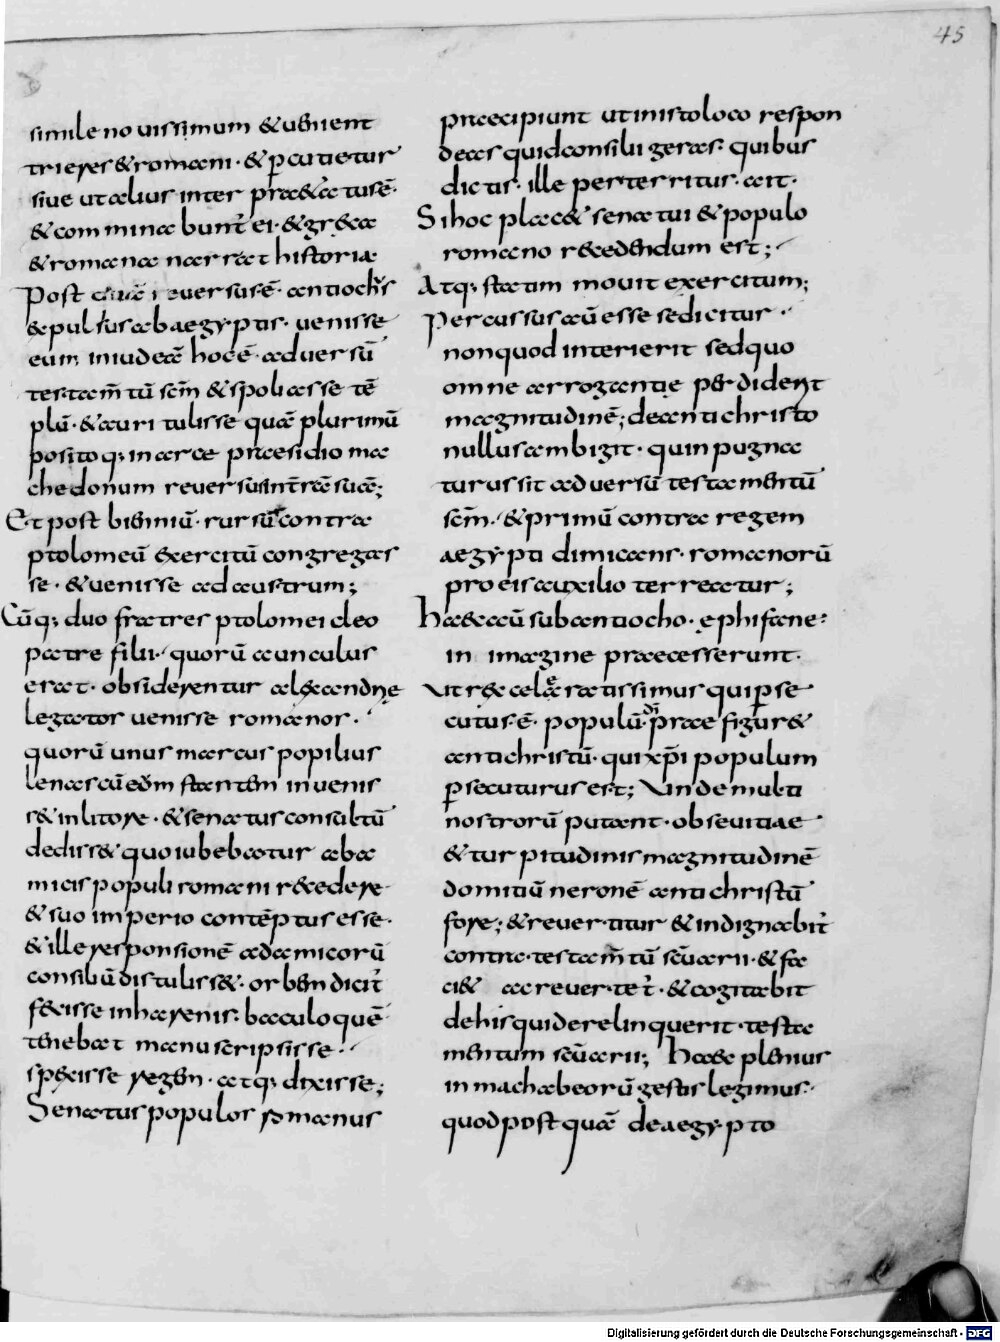 45
simile novissimum & venient
trieres & romani · & p̄cutietur
sive ut alius inter pr&atusē·
& comminabunt̄ ei · & gr&ca
& romana narrat historia
Post reversusē· antioch's
& pulsus ab aegyptis · venisse
eum in iudeā hocē· adversū
testam̄tū sc̄m & spoliasse tē
plū · & auri tulisse quā plurimū
posito q; in arce praesidio ma
chedonum reversum suā;
Et post bieniū · rursū contra
ptolomeū exercitū congregas
se · & venisse ad austrum;
Cūq; duo fratres ptolomei cleo
patre filii · quorū avunculus
erat · obsiderentur al&andrię
legator venisse romanor ·
quorū unus marcus popilius
lenas cū eōm stantem invenis
s& in litore · & senatus consultū
dediss& quo iubebatur ab a
micis populi romani r&cedere
& suo imperio contēptus esse ·
& ille responsionē ad amicorū
consiliū distuliss& · orbem dicit̄
f&cisse in harenis · baculo quē
tenebat manu scripsisse ·
sp&cisse regem · atq; dixisse;
Senatus populos romanus
praecipiunt ut in isto loco respon
deas quid consilii geras · quibus
dictis · ille perterritus · ait ·
Si hoc plac& senatui & populo
romano r&edendum est;
Atq; statim movit exercitum;
Percussus aū esse dicitur ·
non quod interierit sed quo
omne arrogantie perdiderit
magnitudinē; de antichristo
nullus ambigit · quin pugna
turus sit adversū testamentū
sc̄m · & primū contra regem
aegypti dimicans · romanorū
pro eis auxilio terreatur;
Haec aū sub antiocho · ephifane:
in imagine praecesserunt ·
Ut rex celeratissimus qui p̄se
cutus·ē· populū dī praefigur&
antichristū · qui xp̄i populum
p̄secuturus est; Unde multi
nostrorū putant · ob sevitiae
& turpitudinis magnitudinē
domitiū neronē antichristū
fore; & revertitur & indignabit̄
contra · testam̄tū sc̄uarii · & fa
ci& ac revertet̄ · & cogitabit
de his qui derelinquerit · testa
mentum sc̄uarii; Haec plenius
in machabeorū gestis legimus ·
quod postquā de aegypto
Digitalisierung gefördert durch die Deutsche Forschungsgemeinschaft - DFG